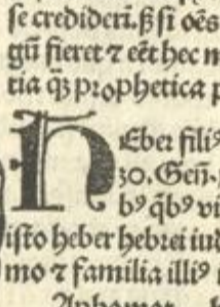 se crediderī. ß si oēs
gū fieret ⁊ eēt hec n
tia qꝫ prophetica p
HEber filiꝰ
30. Geñ.
bꝰ q̄bꝰ vi
isto heber hebrei iu
mo ⁊ familia illiꝰ